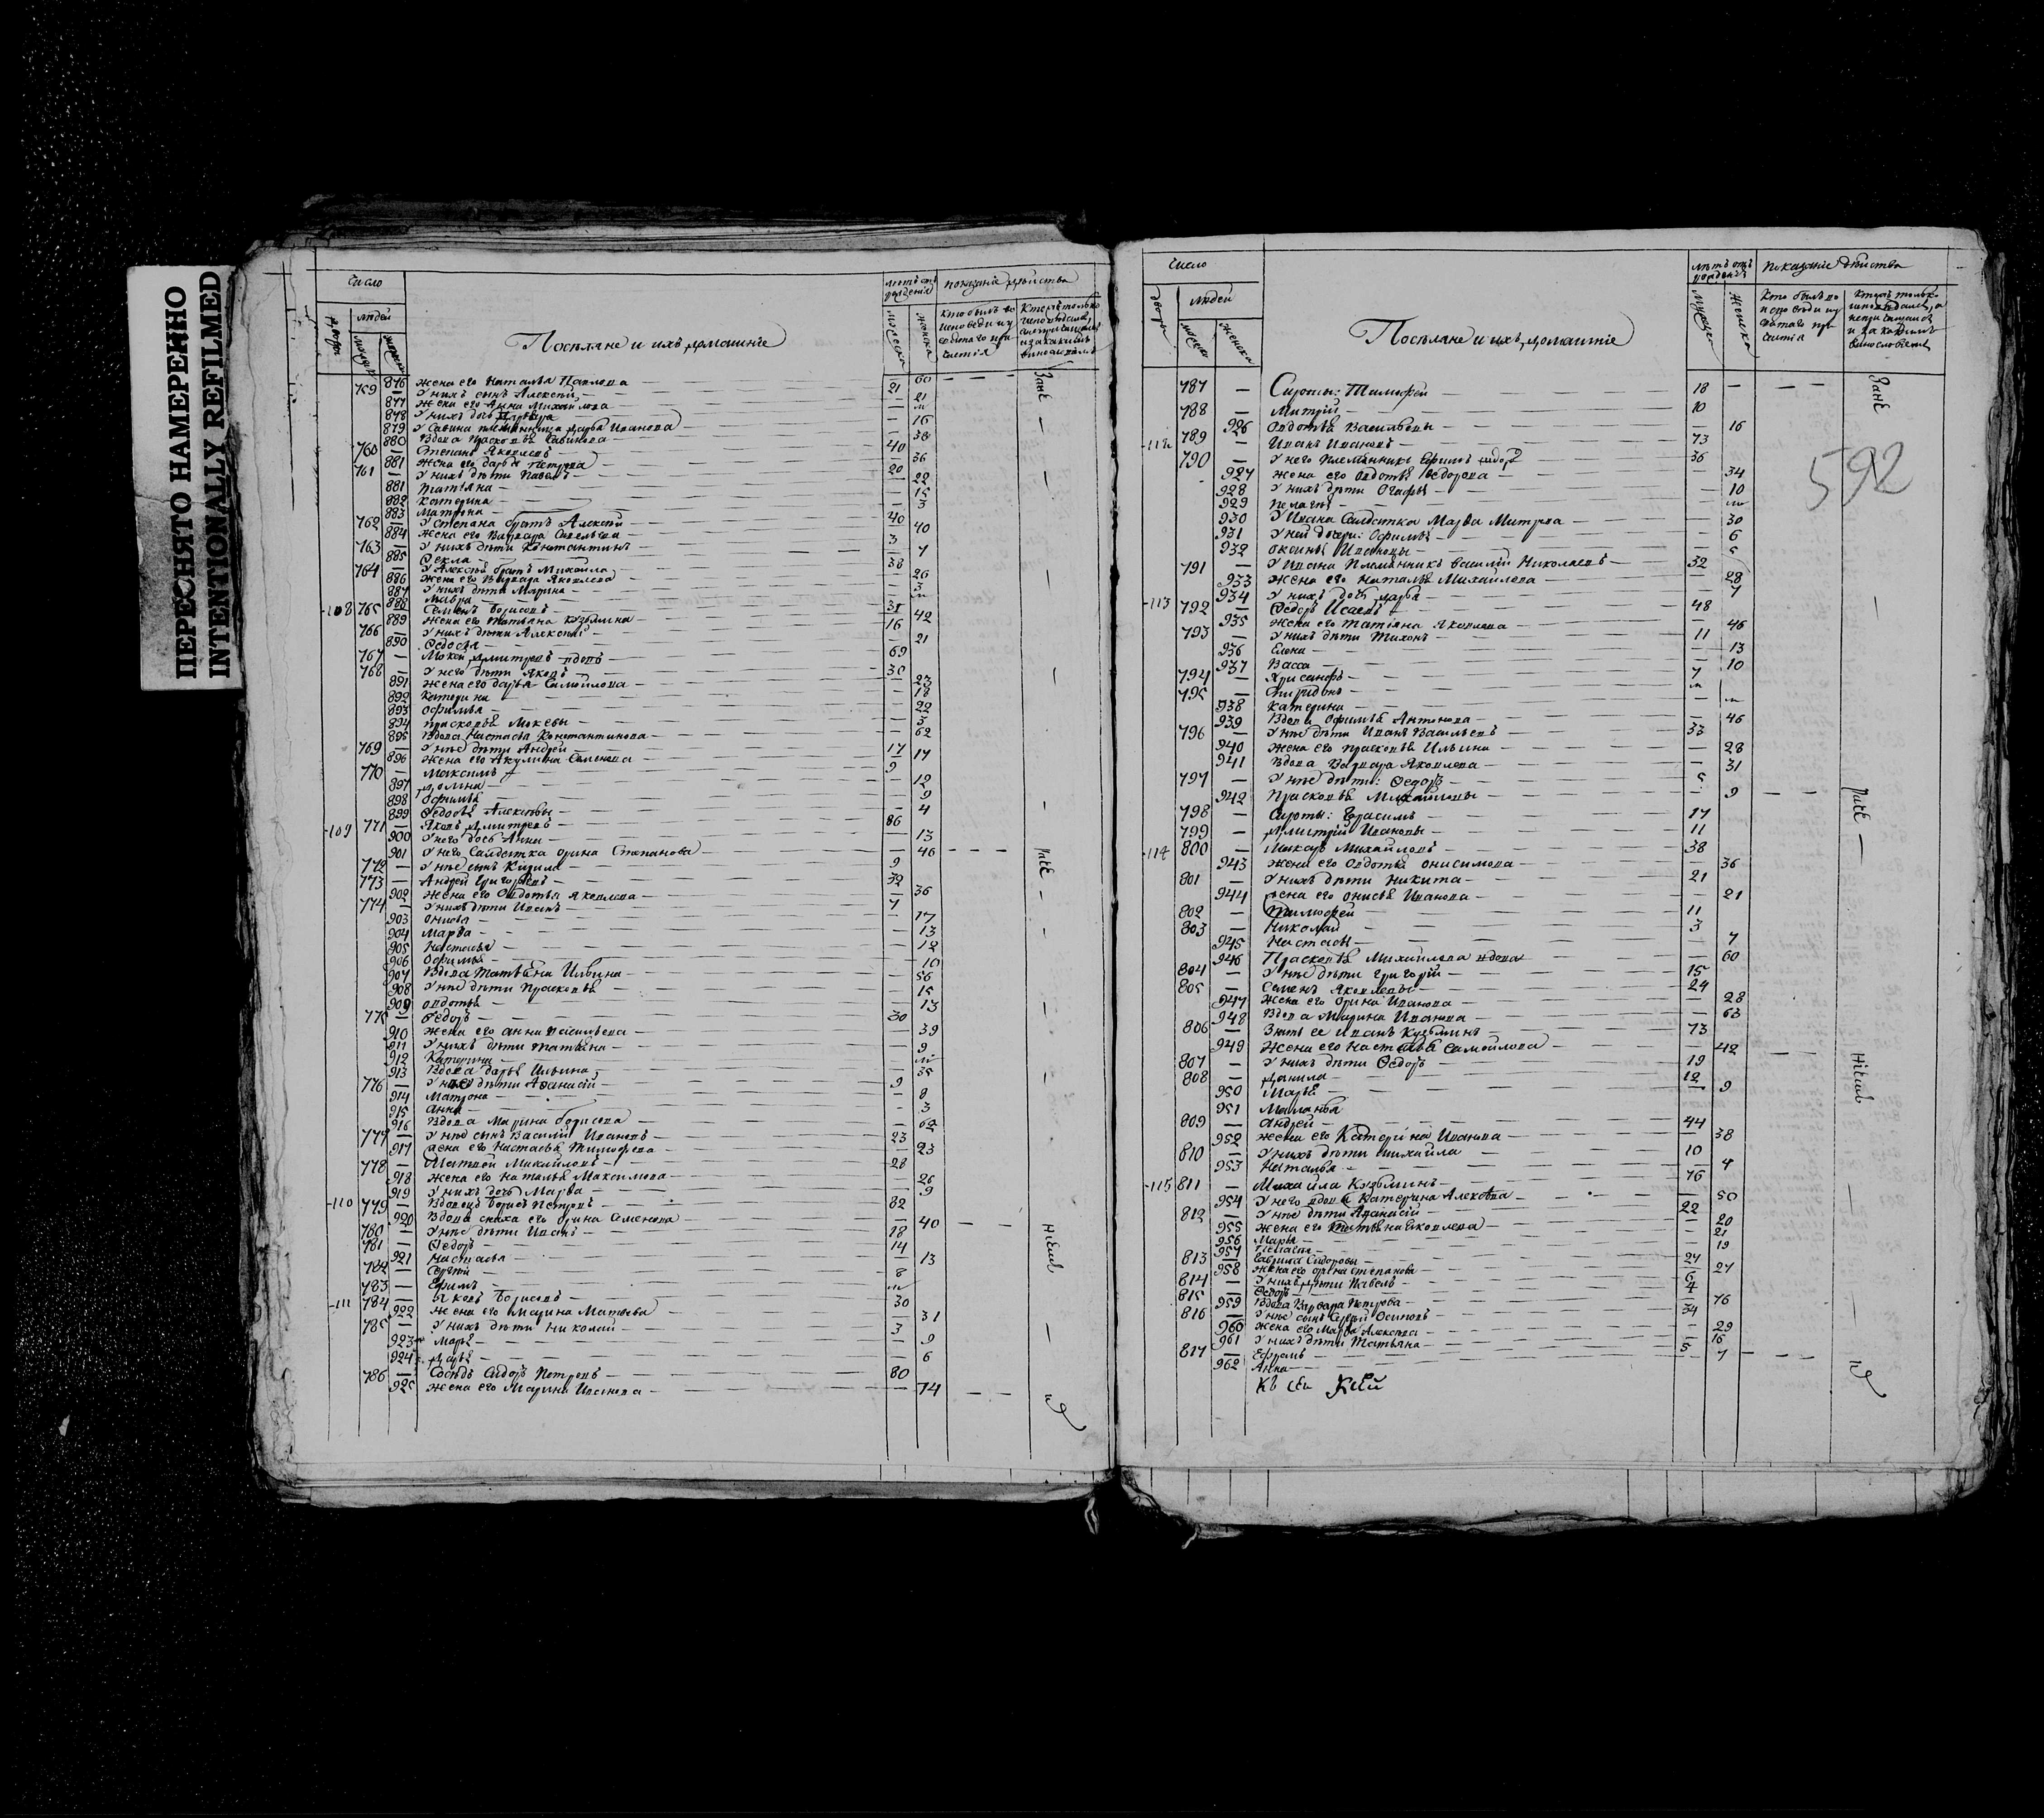 ПЕРЕСНЯТО НАМЕРЕННО
INTENTIONALLY REFILMED
Число
людей
Поселяне и ихъ домашніе
876 жена его Наталья Павлова — 60
759 — У нихъ сынъ Алексей — 21
877 жена его Анна Михайлова — 21
878 У нихъ дочь
879 У Савина племянница Дарья Иванова — 16
880 Вдова Прасковья Савинова — 38
760 — Степанъ Яковлевъ — 40
881 жена его Дарья Петрова — 36
761 — У нихъ дети Павелъ — 20
881 Татіяна — 22
882 Катерина — 15
883 Матрона — 3
762 — У Степана братъ Алексей — 40
884 жена его Варвара Савельева — 40
763 — У нихъ дети Константинъ — 3
885 Фекла — 7
764 — У Алексея братъ Михайла — 38
886 жена его Варвара Яковлева — 26
887 У нихъ дети Марина — 3
888 Мавра
108 765 — Семенъ Борисовъ — 31
889 жена его Татьяна Кузьмина — 42
766 — У нихъ дети Алексей — 16
890 Федосья — 21
767 — Мокей Дмитревъ вдовъ — 69
768 — У него дети Яковъ — 30
891 жена его Дарья Самойлова — 23
892 Катерина — 18
893 Офимья — 22
894 Прасковья Мокевы — 3
895 Вдова Настасья Константинова — 62
769 — У нее дети Андрей — 17
896 жена его Акулина Семенова — 17
770 — Максимъ — 9
897 Домна — 12
898 Офимья — 9
899 Федосья Алексевы — 4
109 771 — Яковъ Дмитревъ — 86
900 У него дочь Анна — 13
901 У него Салдатка Орина Степанова — 46
772 — У нее сынъ Кирила — 9
773 — Андрей Григорьевъ — 32
902 жена его Овдотья Яковлева — 36
774 — У нихъ дети Иванъ — 7
903 Онисья — 17
904 Марфа — 13
905 Настасья — 12
906 Офимья — 10
907 Вдова Татьяна Ильина — 56
908 У нее дети Прасковья — 15
909 Овдотья — 13
775 — Федоръ — 30
910 жена его Анна Васильева — 39
911 У нихъ дети Татьяна — 9
912 Катерина — м
913 Вдова Дарья Ильина — 35
776 — У нее дети Афанасій — 9
914 Матрона — 8
915 Анна — 3
916 Вдова Марина Борисова — 62
777 — У нее сынъ Василій Ивановъ — 23
917 жена его Настасья Тимофева — 23
778 — Матвей Михайловъ — 28
918 жена его Наталья Максимова — 26
919 У нихъ дочь Марфа — 9
110 779 — Вдовецъ Борисъ Петровъ — 82
920 Вдова сноха его Орина Семенова — 40
780 — У нее дети Иванъ — 18
781 — Федоръ — 14
921 Настасья — 13
782 — Сергей — 8
783 — Ефимъ — м
111 784 — Яковъ Борисовъ — 30
922 жена его Марина Матвева — 31
785 — У нихъ дети Николай — 3
923 Марья — 9
924 Дарья — 6
786 — Соседъ Сидоръ Петровъ — 80
925 жена его Марина Иванова — 74
Число
людей
Поселяне и ихъ домашніе
592
787 — Сироты: Тимофей — 18
788 — Митрій — 10
926 Овдотья Васильевы — 16
112 789 — Иванъ Ивановъ — 73
790 — У него племянникъ Ефимъ — 36
927 жена его Овдотья Федорова — 34
928 У нихъ дети Огафья — 10
929 Пелагея — м
930 У Ивана Салдатка Марфа Митрева — 30
931 У ней дочери: Офимья — 6
932 Оксинья Ивановы
791 — У Ивана племянникъ Василій Николаевъ — 32
933 жена его Наталья Михайлова — 28
934 У нихъ дочь Марфа — 7
113 792 — Федоръ Исаевъ — 48
935 жена его Татіяна Яковлева — 46
793 — У нихъ дети Тихонъ — 11
936 Елена — 13
937 Васса — 10
794 — Хрисанфъ — 7
795 — Спиридонъ — м
938 Катерина — м
939 Вдова Офимья Антонова — 46
796 — У нее дети Иванъ Васильевъ — 33
940 жена его Прасковья Ильина — 28
941 Вдова Варвара Яковлева — 31
797 — У нее дети: Федоръ — 5
942 Прасковья Михайловы — 9
798 — Сироты: Герасимъ — 17
799 — Дмитрій Ивановы — 11
114 800 — Макаръ Михайловъ — 38
943 жена его Овдотья Онисимова — 36
801 — У нихъ дети Никита — 21
944 жена его Онисья Иванова — 21
802 — Тимофей — 11
803 — Николай — 3
945 Настасья — 7
946 Прасковья Михайлова вдова — 60
804 — У нее дети Григорій — 15
805 — Семенъ Яковлевы — 24
947 жена его Орина Иванова — 28
948 Вдова Марина Иванова — 63
806 — Зять ее Иванъ Кузьминъ — 73
949 жена его Настасья Самойлова — 42
807 — У нихъ дети Федоръ — 19
808 — Данила — 12
950 Марья — 9
951 Маланья
809 — Андрей — 44
952 жена его Катерина Иванова — 38
810 — У нихъ дети Михайла — 10
953 Наталья — 4
115 811 — Михайла Кузьминъ — 76
954 У него вдова Катерина Алексева — 50
812 — У нее дети Афанасій — 22
955 жена его Татьяна Яковлева — 20
956 Марья — 21
957 — 19
813 — Гаврила Сидоровъ — 27
958 жена его Орина Степанова — 27
814 — У нихъ дети Павелъ — 6
815 — Федоръ — 4
959 Вдова Варвара Петрова — 76
816 — У нее сынъ Сергей Осиповъ — 34
960 жена его Марфа Алексева — 29
961 У нихъ дети Татьяна — 16
817 — Ефремъ — 5
962 Анна — 7